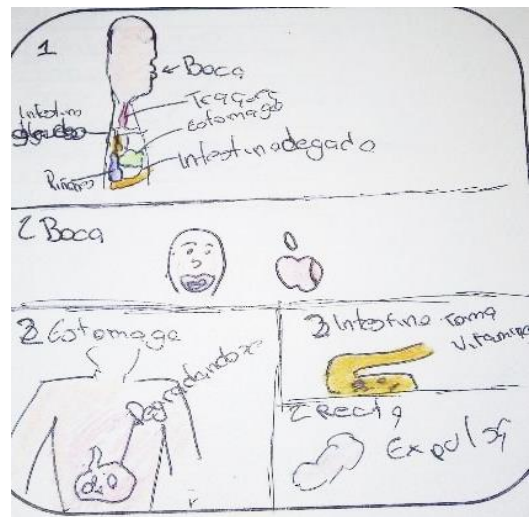 1
Boca
Estomago
Intestino
Intestinodegado
Riñones
2 Boca
Estomago
Degradandose
3 Intestino Toma
Vitaminas
Recto
Expulsa